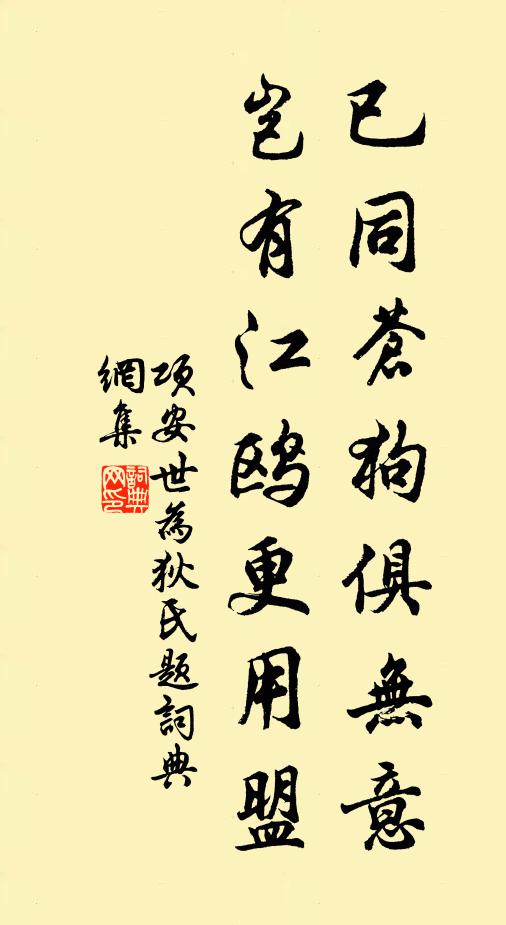 已同蒼狗俱無意
豈有江鷗更用盟
項安世為狄氏題詞典
網集
詞典
网印